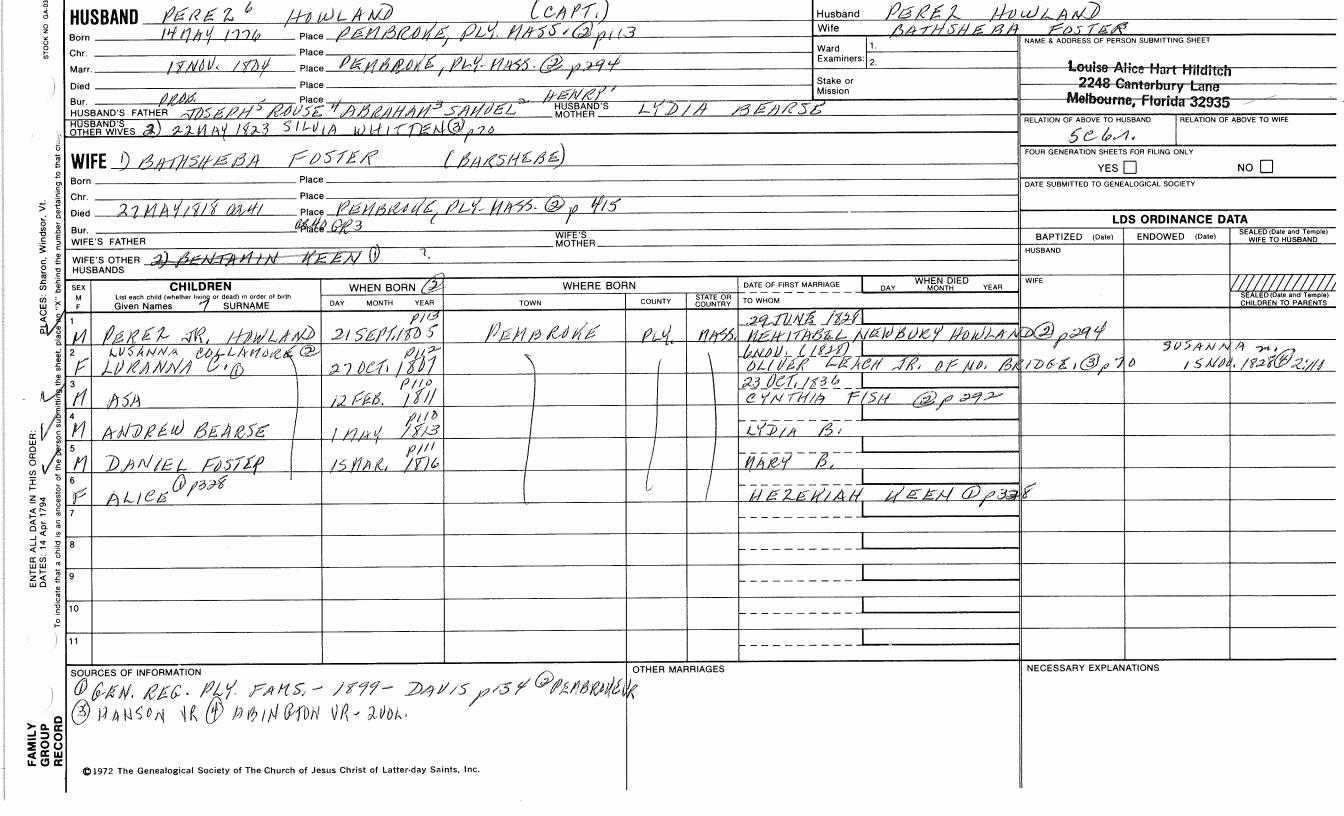 HUSBAND PEREZ 6 HOWLAND (CAPT.)
Born 14 MAY 1776 Place PEMBROKE, PLY. MASS. ② p113
Chr. Place
Marr. 18 NOV. 1804 Place PEMBROKE, PLY-MASS. ② p294
Died Place
Bur. PROB. Place
HUSBAND'S FATHER JOSEPH 5 ROUSE 4 ABRAHAM 3 SAMUEL 2 HENRY 1 HUSBAND'S MOTHER LYDIA BEARSE
HUSBAND'S OTHER WIVES 2) 22 MAY 1823 SILVIA WHITTEN ③ p70
WIFE 1) BATHSHEBA FOSTER (BARSHEBE)
Born Place
Chr. Place
Died 27 MAY 1818 Place PEMBROKE, PLY-MASS. ② p 415
Bur. Place GR3
WIFE'S FATHER WIFE'S MOTHER
WIFE'S OTHER HUSBANDS 2) BENJAMIN KEEN ① ?
Husband PEREZ HOWLAND
Wife BATHSHEBA FOSTER
Ward Examiners: 1.
2.
Stake or Mission
NAME & ADDRESS OF PERSON SUBMITTING SHEET
Louise Alice Hart Hilditch
2248 Canterbury Lane
Melbourne, Florida 32935
RELATION OF ABOVE TO HUSBAND RELATION OF ABOVE TO WIFE
5C6R.
FOUR GENERATION SHEETS FOR FILING ONLY
YES NO
DATE SUBMITTED TO GENEALOGICAL SOCIETY
LDS ORDINANCE DATA
BAPTIZED (Date) ENDOWED (Date) SEALED (Date and Temple) WIFE TO HUSBAND
HUSBAND
WIFE
SEALED (Date and Temple) CHILDREN TO PARENTS
SEX M F
CHILDREN
List each child (whether living or dead) in order of birth
Given Names SURNAME
WHEN BORN ②
DAY MONTH YEAR
WHERE BORN
TOWN COUNTY STATE OR COUNTRY
DATE OF FIRST MARRIAGE
TO WHOM
WHEN DIED
DAY MONTH YEAR
1 p113 29 JUNE 1828
M PEREZ JR. HOWLAND 21 SEPT. 1805 PEMBROKE PLY. MASS. MEHITABEL NEWBURY HOWLAND ② p294
2 LUSANNA COLLAMORE ② p112 6 NOV. (1828) SUSANNA m.
F LURANNA C. ① 27 OCT. 1807 OLIVER LEACH JR. OF NO. BRIDGE. ③ p70 15 NOV. 1828 ④ 2:111
3 p110 23 OCT. 1836
M ASA 12 FEB. 1811 CYNTHIA FISH ② p292
4 p110
M ANDREW BEARSE 1 MAY 1813 LYDIA B.
5 p111
M DANIEL FOSTER 15 MAR. 1816 MARY B.
6
F ALICE ① p328 HEZEKIAH KEEN ① p328
7
8
9
10
11
SOURCES OF INFORMATION
① GEN. REG. PLY. FAMS. - 1899 - DAVIS p134 ② PEMBROKE VR
③ HANSON VR ④ ABINGTON VR - 2 VOL.
OTHER MARRIAGES
NECESSARY EXPLANATIONS
©1972 The Genealogical Society of The Church of Jesus Christ of Latter-day Saints, Inc.
STOCK NO GA-03
ENTER ALL DATA IN THIS ORDER:
DATES: 14 Apr 1794 PLACES: Sharon, Windsor, Vt.
To indicate that a child is an ancestor of the person submitting the sheet, place an "X" behind the number pertaining to that
FAMILY GROUP RECORD